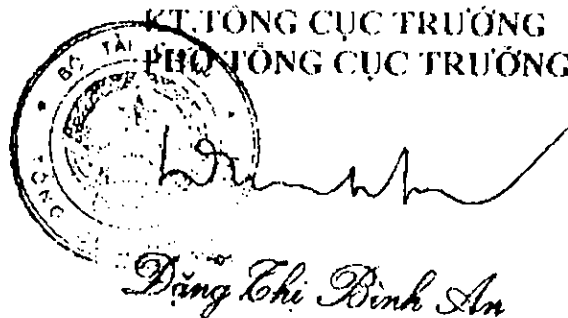 KT.TỔNG CỤC TRƯỞNG
PHÓ TỔNG CỤC TRƯỞNG
BỘ TÀI
Đặng Thị Bình An